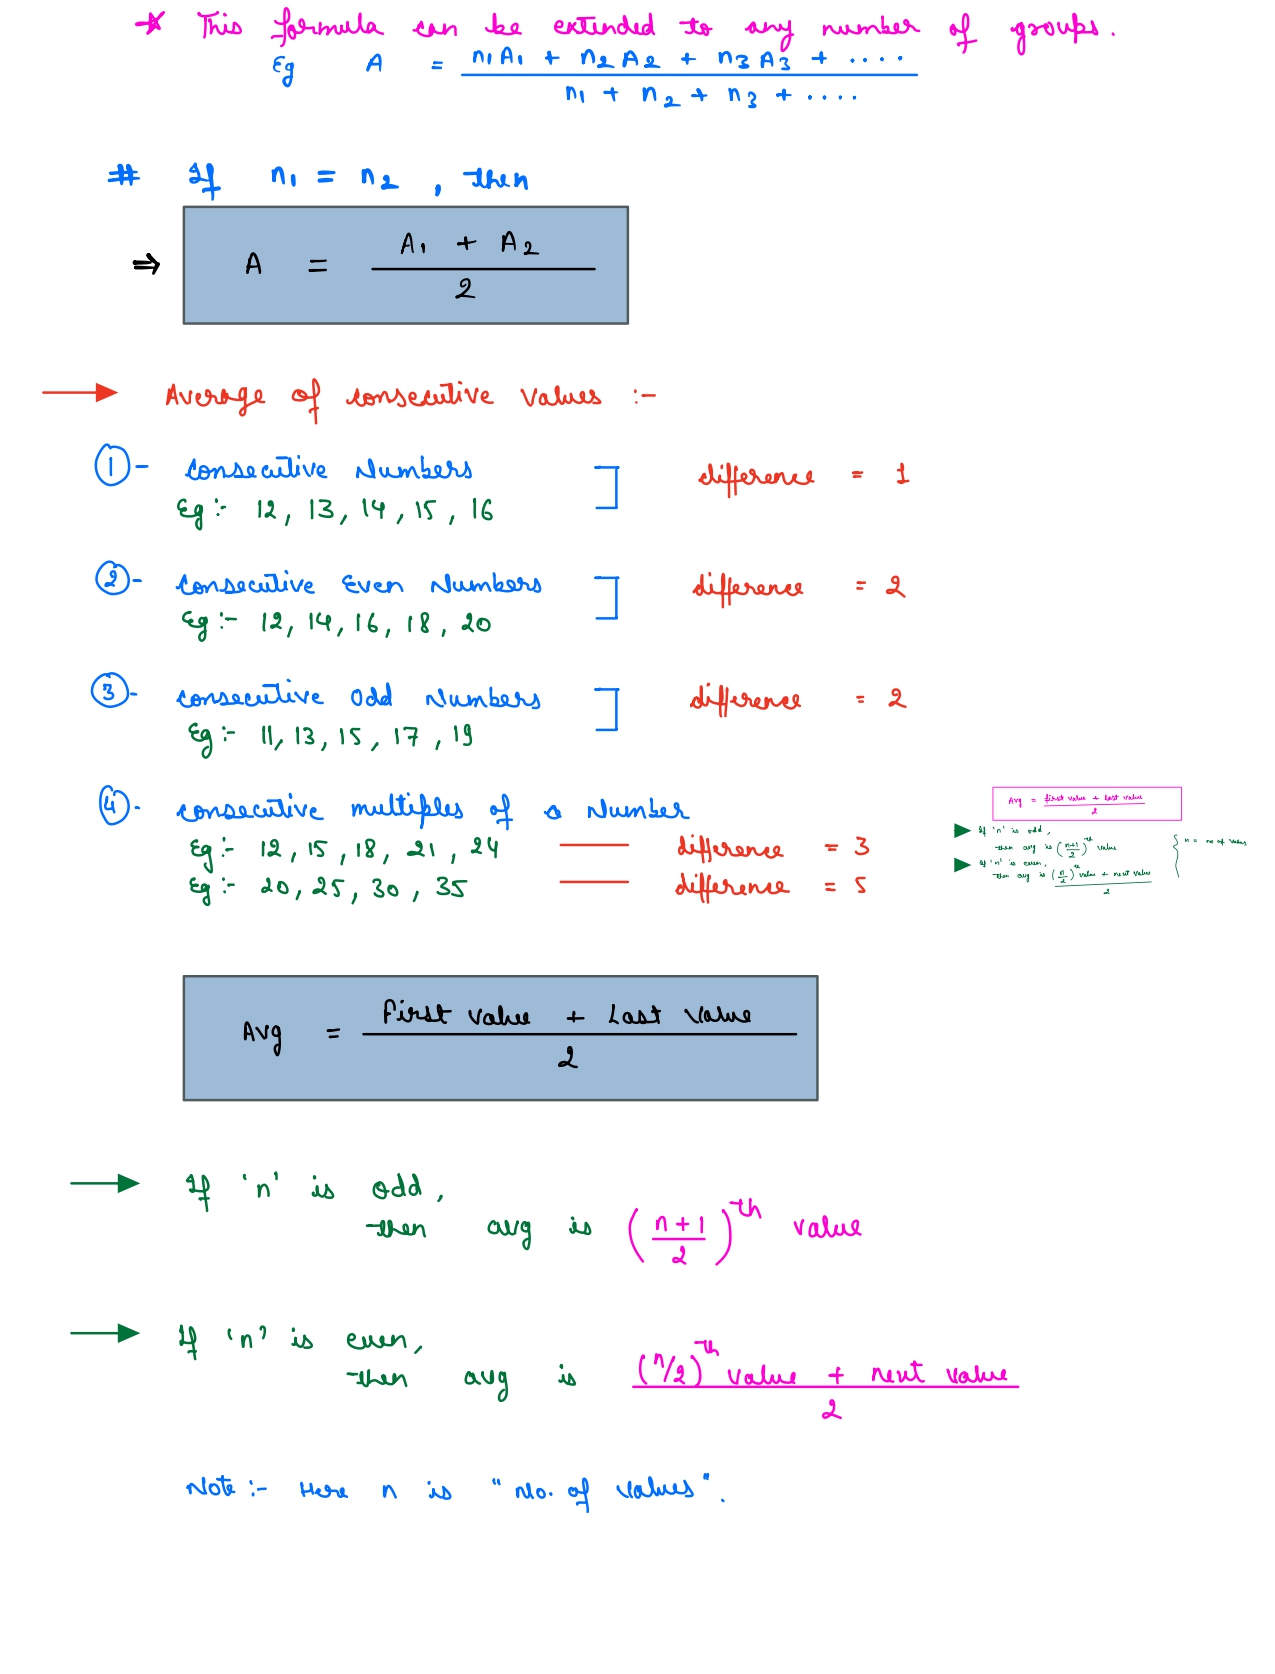 * This formula can be extended to any number of groups.
Eg A = (n1A1 + n2A2 + n3A3 + ....) / (n1 + n2 + n3 + ....)
# If n1 = n2, then
⇒ A = (A1 + A2) / 2
→ Average of consecutive values :-
①- Consecutive Numbers ] difference = 1
Eg :- 12, 13, 14, 15, 16
②- Consecutive Even Numbers ] difference = 2
Eg :- 12, 14, 16, 18, 20
③- Consecutive Odd Numbers ] difference = 2
Eg :- 11, 13, 15, 17, 19
④- Consecutive multiples of a Number
Eg :- 12, 15, 18, 21, 24 — difference = 3
Eg :- 20, 25, 30, 35 — difference = 5
Avg = (first value + last value) / 2
▶ If 'n' is odd,
then avg is ((n+1)/2)th value
▶ If 'n' is even,
then avg is ((n/2)th value + next value) / 2
{ n = no of values
Avg = (First value + Last value) / 2
→ If 'n' is odd,
then avg is ((n+1)/2)th value
→ If 'n' is even,
then avg is ((n/2)th value + next value) / 2
Note :- Here n is "No. of values".